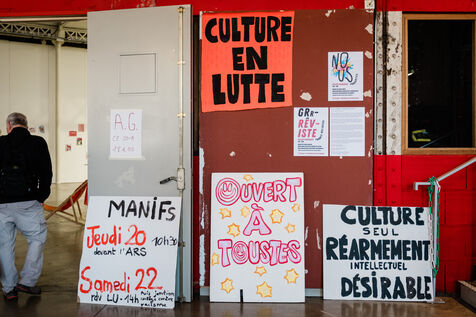 CULTURE
EN
LUTTE
NOUS
A.G.
CE SOIR
GRR-
RÉVISTE
MANIFS
Jeudi 20 10h30
devant l'ARS
Samedi 22
rdv LU - 14h
OUVERT
À
TOUSTES
CULTURE
SEUL
RÉARMEMENT
INTELLECTUEL
DÉSIRABLE